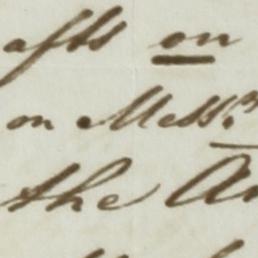 afts on
on Mess.rs
the A